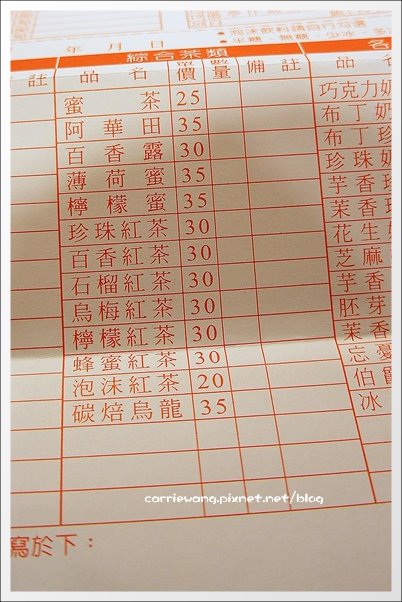 泡沫飲料請自行勾選
年 月 日
半糖、無糖、少冰、多
綜合茶類
註 品名 單價 數量 備註 品 名
蜜茶 25 巧克力奶
阿華田 35 布丁奶
百香露 30 布丁珍
薄荷蜜 35 珍珠奶
檸檬蜜 35 芋香珍
珍珠紅茶 30 茉香珍
百香紅茶 30 花生奶
石榴紅茶 30 芝麻
烏梅紅茶 30 芋香
檸檬紅茶 30 胚芽
蜂蜜紅茶 30 茉香
泡沫紅茶 20 忘憂
碳焙烏龍 35 伯爵
冰
carriewang.pixnet.net/blog
寫於下：